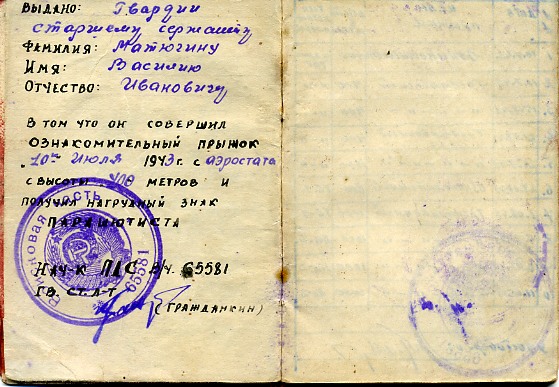 Выдано: Гвардии
старшему сержанту
Фамилия: Матюгину
Имя: Василию
Отчество: Ивановичу
В том что он совершил
ознакомительный прыжок
10го Июля 1943 г. с аэростата
с высоты 400 метров и
получил нагрудный знак
парашютиста
Нач-к ПДС В/ч. 65581
Гв. ст. л-т
(Гражданкин)
войсковая часть
65581